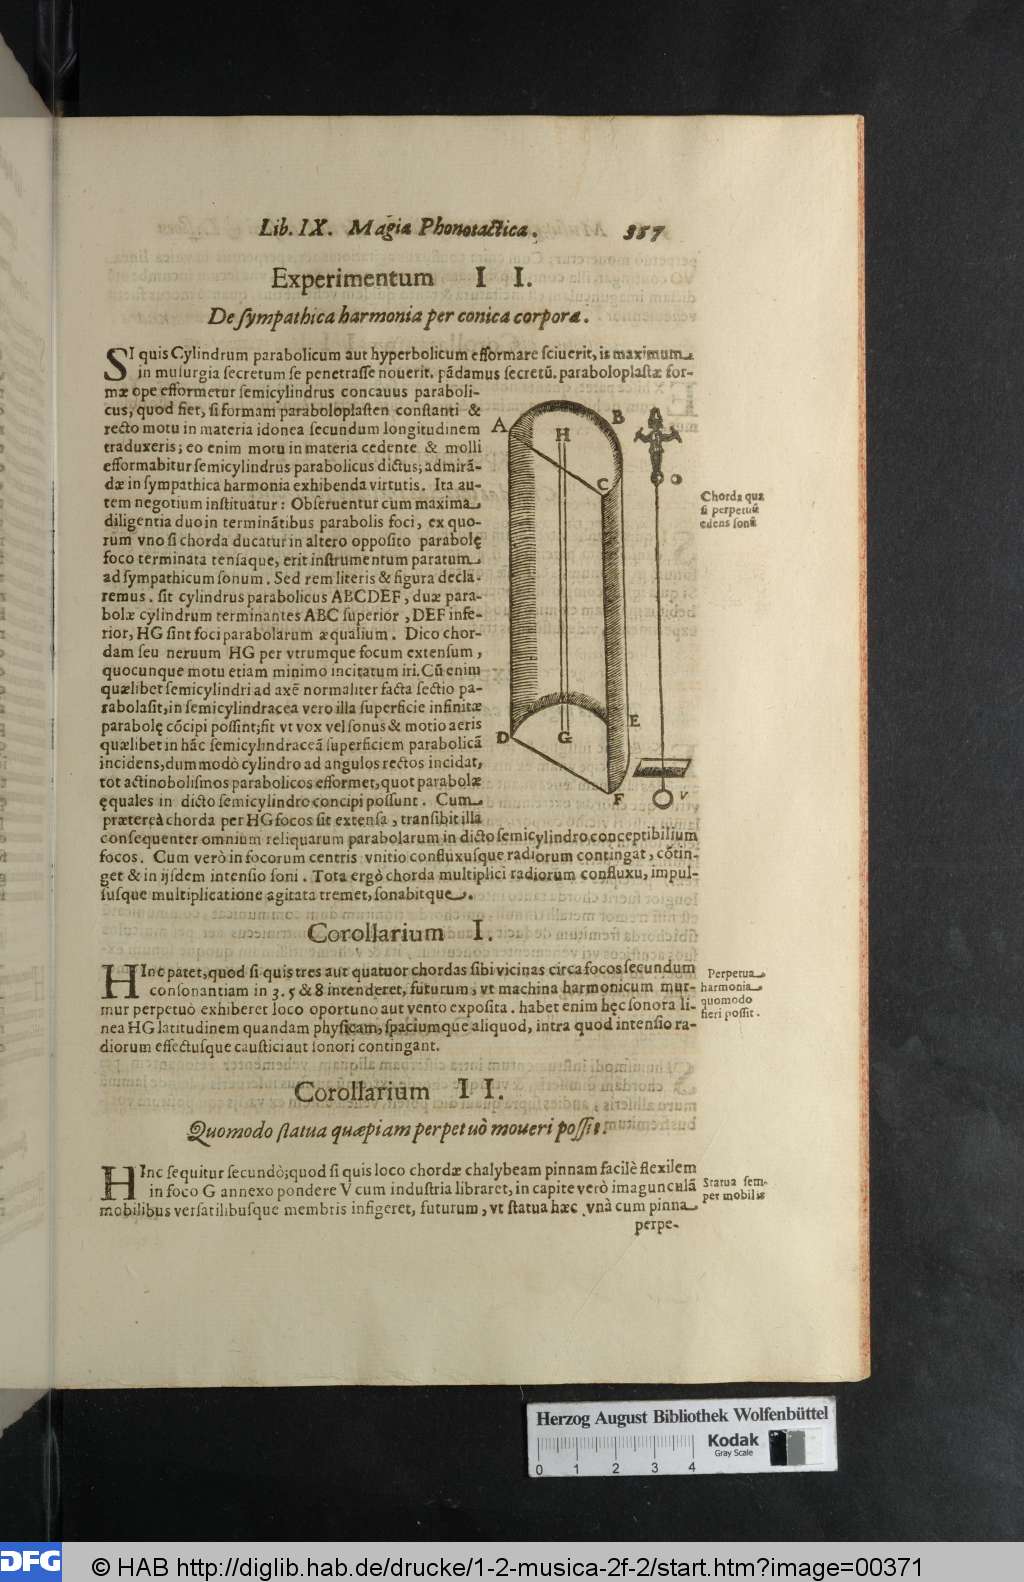 Lib. IX. Magia Phonotactica. 357
Experimentum II.
De ſympathica harmonia per conica corpora.
SI quis Cylindrum parabolicum aut hyperbolicum efformare ſciuerit, is maximum
in muſurgia ſecretum ſe penetraſſe nouerit. pãdamus ſecretũ. paraboloplaſtæ for-
mæ ope efformetur ſemicylindrus concauus paraboli-
cus, quod fiet, ſi formam paraboloplaſten conſtanti &
recto motu in materia idonea ſecundum longitudinem
traduxeris; eo enim motu in materia cedente & molli
efformabitur ſemicylindrus parabolicus dictus; admirã-
dæ in ſympathica harmonia exhibenda virtutis. Ita au-
tem negotium inſtituatur: Obſeruentur cum maxima
diligentia duo in terminãtibus parabolis foci, ex quo-
rum vno ſi chorda ducatur in altero oppoſito parabolę
foco terminata tenſaque, erit inſtrumentum paratum
ad ſympathicum ſonum. Sed rem literis & figura decla-
remus. ſit cylindrus parabolicus ABCDEF, duæ para-
bolæ cylindrum terminantes ABC ſuperior, DEF infe-
rior, HG ſint foci parabolarum æqualium. Dico chor-
dam ſeu neruum HG per vtrumque focum extenſum,
quocunque motu etiam minimo incitatum iri. Cũ enim
quælibet ſemicylindri ad axẽ normaliter facta ſectio pa-
rabola ſit, in ſemicylindracea vero illa ſuperficie infinitæ
parabolę cõcipi poſſint; fit vt vox vel ſonus & motio aeris
quælibet in hãc ſemicylindraceã ſuperficiem parabolicã
incidens, dummodò cylindro ad angulos rectos incidat,
tot actinoboliſmos parabolicos efformet, quot parabolæ
ęquales in dicto ſemicylindro concipi poſſunt. Cum
præterea chorda per HG focos ſit extenſa, tranſibit illa
conſequenter omnium reliquarum parabolarum in dicto ſemicylindro conceptibilium
focos. Cum verò in focorum centris vnitio confluxuſque radiorum contingat, cõtin-
get & in ijſdem intenſio ſoni. Tota ergò chorda multiplici radiorum confluxu, impul-
ſuſque multiplicatione agitata tremet, ſonabitque.
A
B
H
C
D
G
E
F
V
Chorda quæ
ſi perpetuũ
edens ſonũ
Corollarium I.
HInc patet, quod ſi quis tres aut quatuor chordas ſibi vicinas circa focos ſecundum
conſonantiam in 3. 5 & 8 intenderet, futurum, vt machina harmonicum mur-
mur perpetuò exhiberet loco oportuno aut vento expoſita. habet enim hęc ſonora li-
nea HG latitudinem quandam phyſicam, ſpaciumque aliquod, intra quod intenſio ra-
diorum effectuſque cauſtici aut ſonori contingant.
Perpetua
harmonia
quomodo
fieri poſſit.
Corollarium II.
Quomodo ſtatua quæpiam perpetuò moueri poſſit.
HInc ſequitur ſecundò; quod ſi quis loco chordæ chalybeam pinnam facilè flexilem
in foco G annexo pondere V cum induſtria libraret, in capite verò imagunculã
mobilibus verſatilibuſque membris infigeret, futurum, vt ſtatua hæc vnà cum pinna
perpe-
Statua ſem-
per mobilis
Herzog August Bibliothek Wolfenbüttel
Kodak
Gray Scale
0 1 2 3 4
DFG © HAB http://diglib.hab.de/drucke/1-2-musica-2f-2/start.htm?image=00371